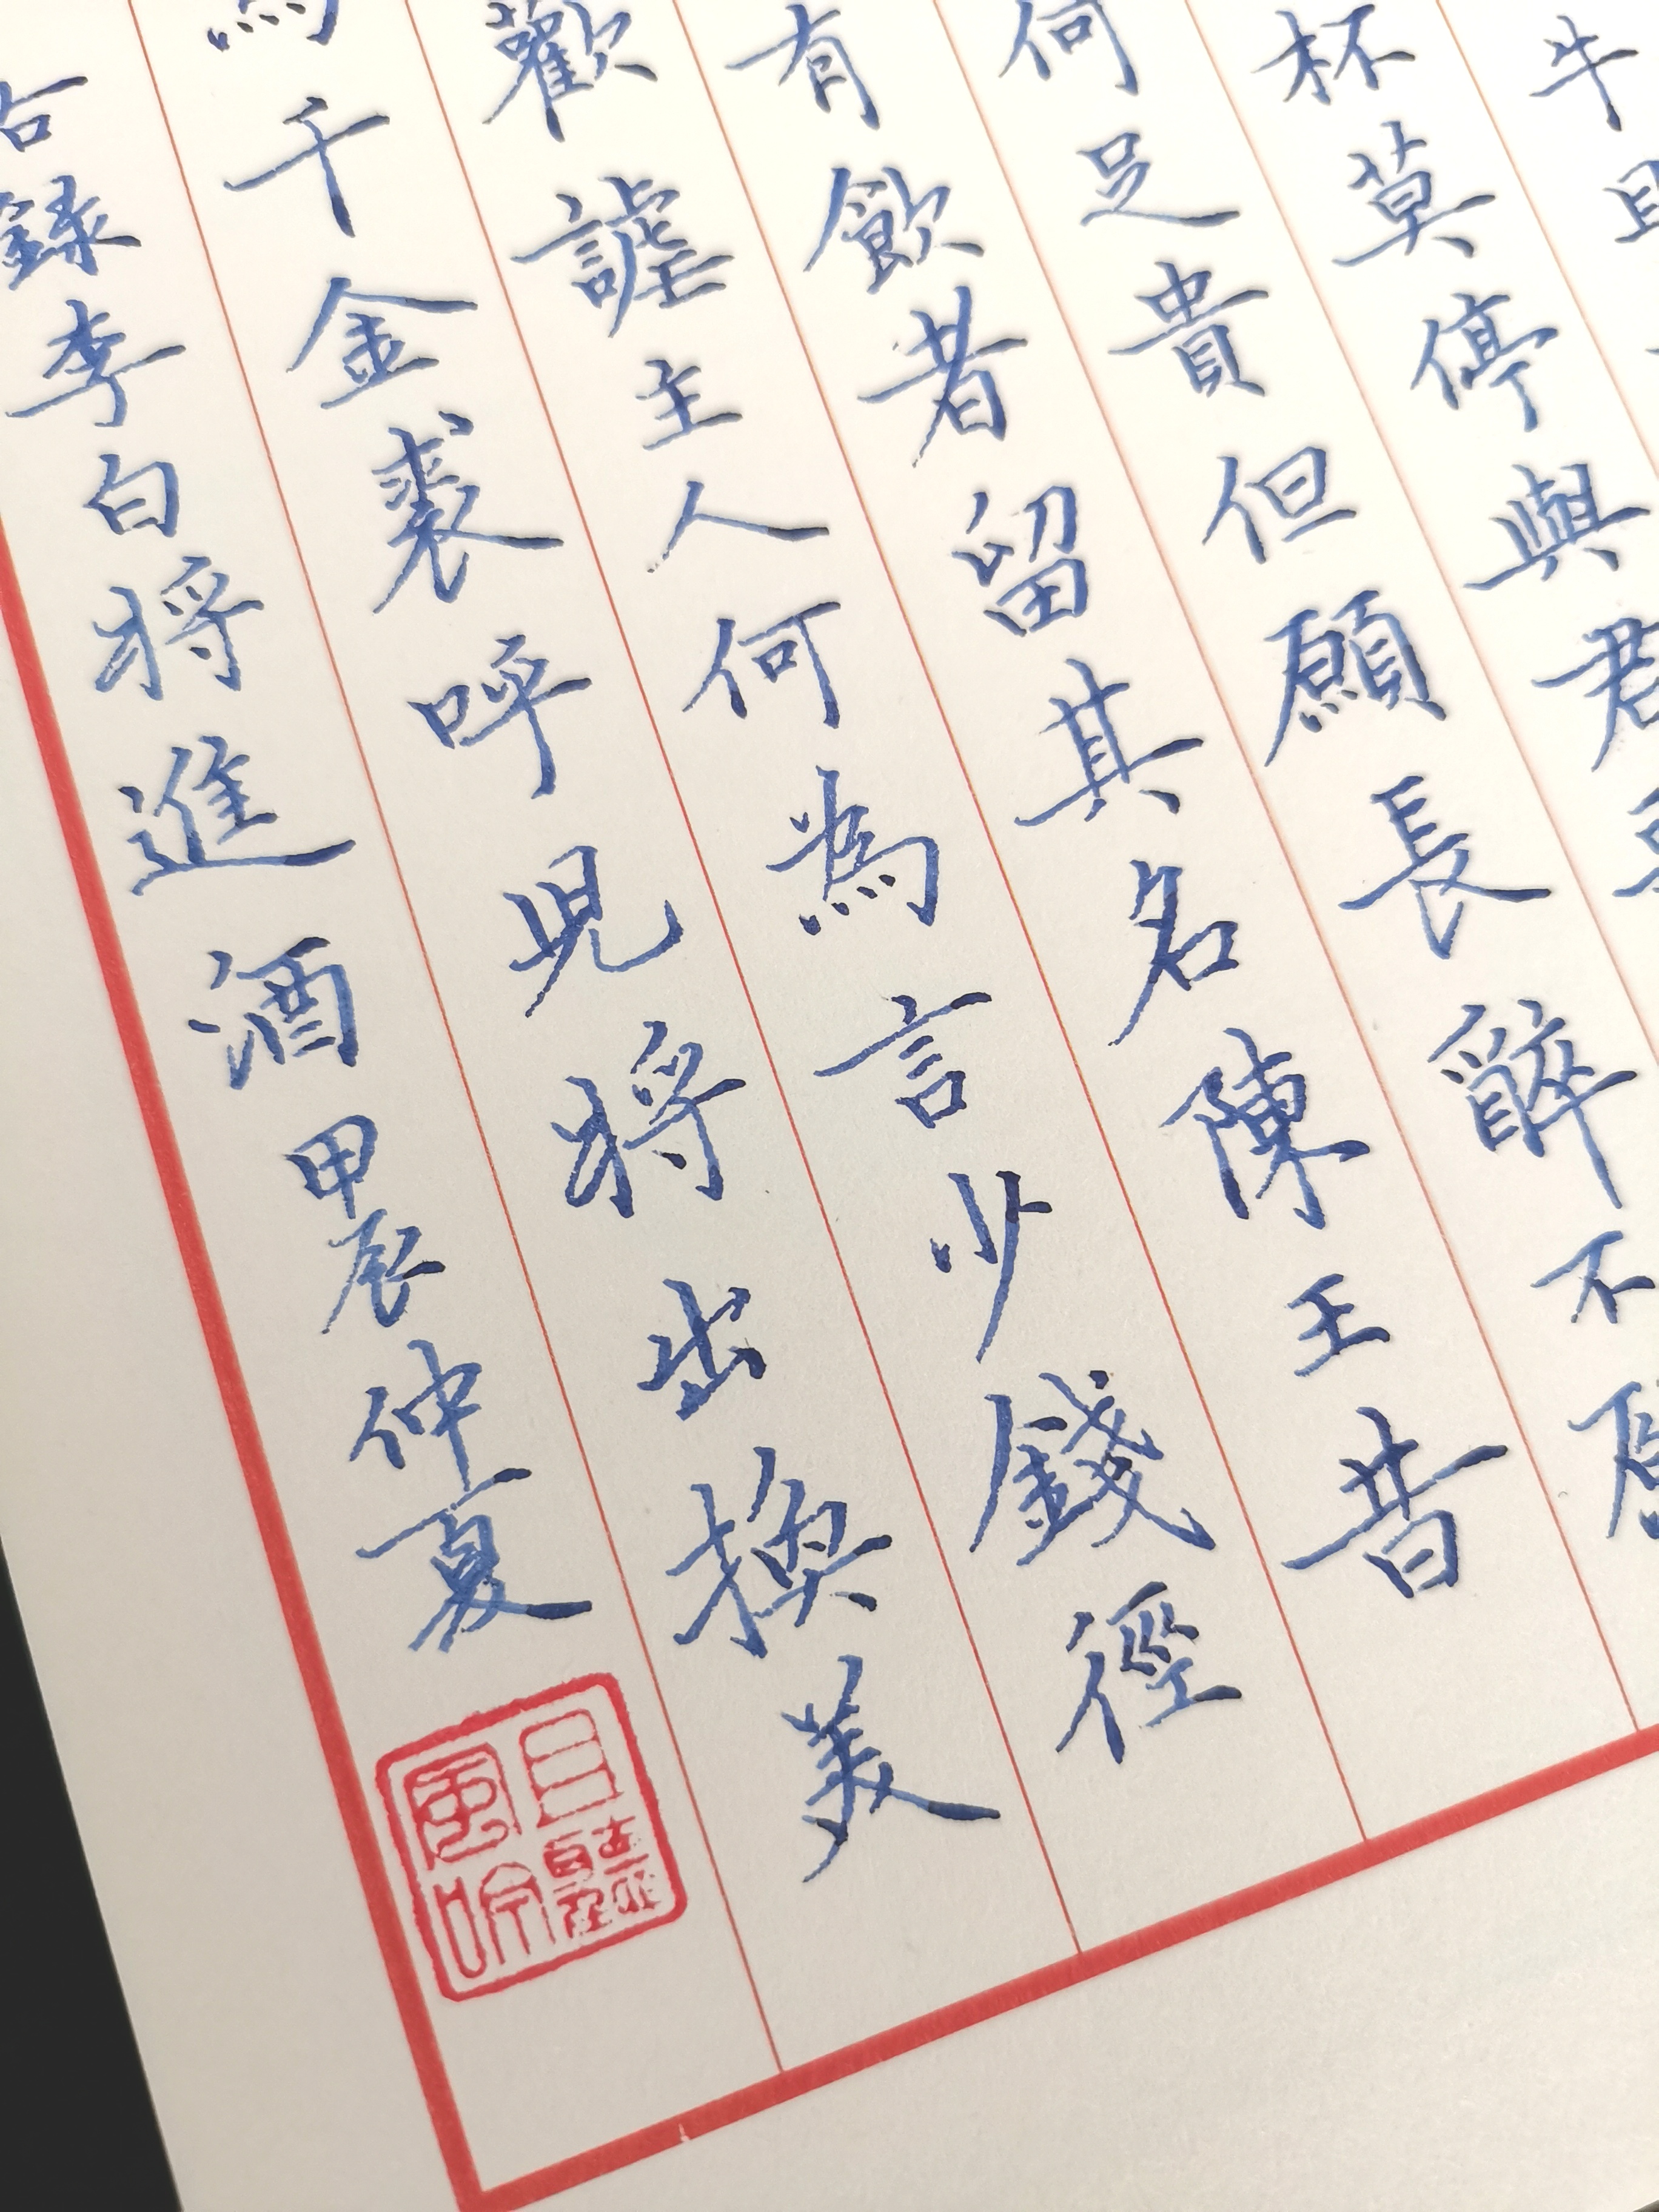 牛且
杯莫停與君
何足貴但願長醉不願
有飲者留其名陳王昔
歡謔主人何為言少錢徑
馬千金裘呼兒將出換美
右錄李白將進酒甲辰仲夏
且聽風吟